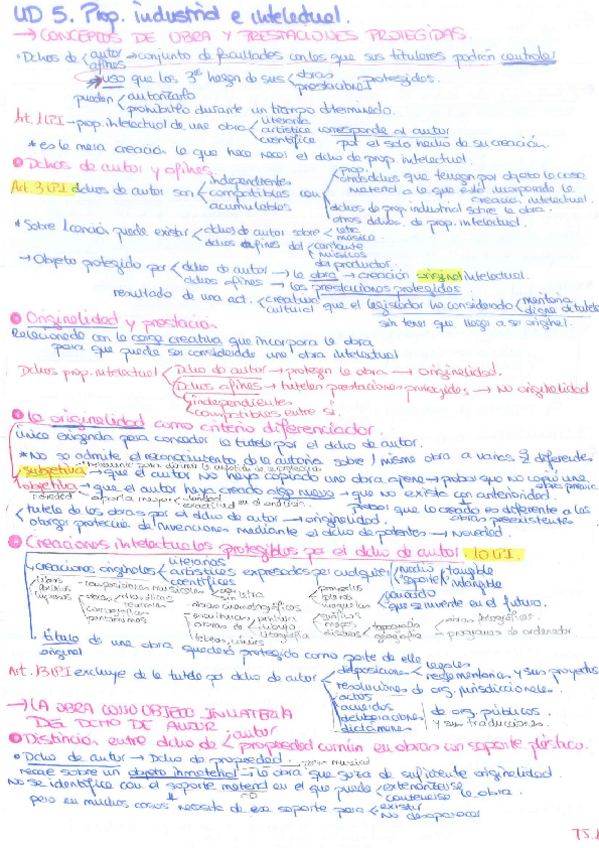 UD 5. Prop. industrial e intelectual.
→ CONCEPTOS DE OBRA Y PRESTACIONES PROTEGIDAS.
· Dchos de autor afines → conjunto de facultades con las que sus titulares podrán controlar
uso que los 3º hagan de sus obras prestaciones protegidos.
pueden autorizarlo
prohibirlo durante un tiempo determinado.
Art. 1 LPI → prop. intelectual de una obra literaria artística científica corresponde al autor por el solo hecho de su creación
* es la mera creación la que hace nacer el dcho de prop. intelectual.
Dchos de autor y afines.
Art. 3 LPI dchos de autor son independientes compatibles acumulables con
prop. otros dchos que tengan por objeto la cosa material a la que está incorporada la creación intelectual.
dchos de prop industrial sobre la obra.
otros dchos. de prop. intelectual.
* Sobre 1 canción puede existir dchos de autor sobre letra música.
dchos afines del cantante músicos del productor.
→ Objeto protegido por dcho de autor → la obra → creación original intelectual.
dchos afines → las prestaciones protegidas
resultado de una act. creativa cultural que el legislador ha considerado meritoria digna de tutela
sin tener que llegar a ser original.
Originalidad y prestación
Relacionado con la carga creativa que incorpora la obra
para que pueda ser considerada una obra intelectual
Dchos prop. intelectual Dcho de autor → protegen la obra → originalidad.
Dchos afines → tutelan prestaciones protegidas → No originalidad
independientes
compatibles entre sí.
La originalidad como criterio diferenciador.
única exigencia para conceder la tutela por el dcho de autor.
* No se admite el reconocimiento de la autoría sobre 1 misma obra a varios diferentes
subjetiva → que el autor no haya copiado una obra ajena → probar que no copió una obra previa
objetiva → que el autor haya creado algo nuevo → que no exista con anterioridad.
novedad aporta mayor
probar que lo creado es diferente a las obras preexistentes
tutela de las obras por el dcho de autor → originalidad.
otorgar protección de invenciones mediante el dcho de patentes → Novedad.
Creaciones intelectuales protegibles por el dcho de autor. 10 LPI.
creaciones originales literarias artísticas científicas expresadas por cualquier medio soporte tangible intangible
conocido
que se invente en el futuro.
libros composiciones musicales con sin letra proyectos
impresos obras teatrales obras cinematográficas maquetas
coreografías esculturas, pintura gráficos topografía obras fotográficas
pantomimas obras de dibujo mapas geografía programas de ordenador
litografía diseños
tebeos, cómics
título de una obra quedará protegido como parte de ella
original
Art. 13 LPI excluye de la tutela por dcho de autor disposiciones legales reglamentarias y sus proyectos
resoluciones de org. jurisdiccionales.
actos
acuerdos
deliberaciones
dictámenes
de org. públicos y sus traducciones.
→ LA OBRA COMO OBJETO INMATERIAL DEL DCHO DE AUTOR
Distinción entre dcho de autor propiedad común en obras con soporte plástico.
Dcho de autor → Dcho de propiedad.
recae sobre un objeto inmaterial → la obra que goza de suficiente originalidad.
No se identifica con el soporte material en el que puede exteriorizarse contenerse la obra.
pero en muchos casos necesita de ese soporte para existir
No desaparecer